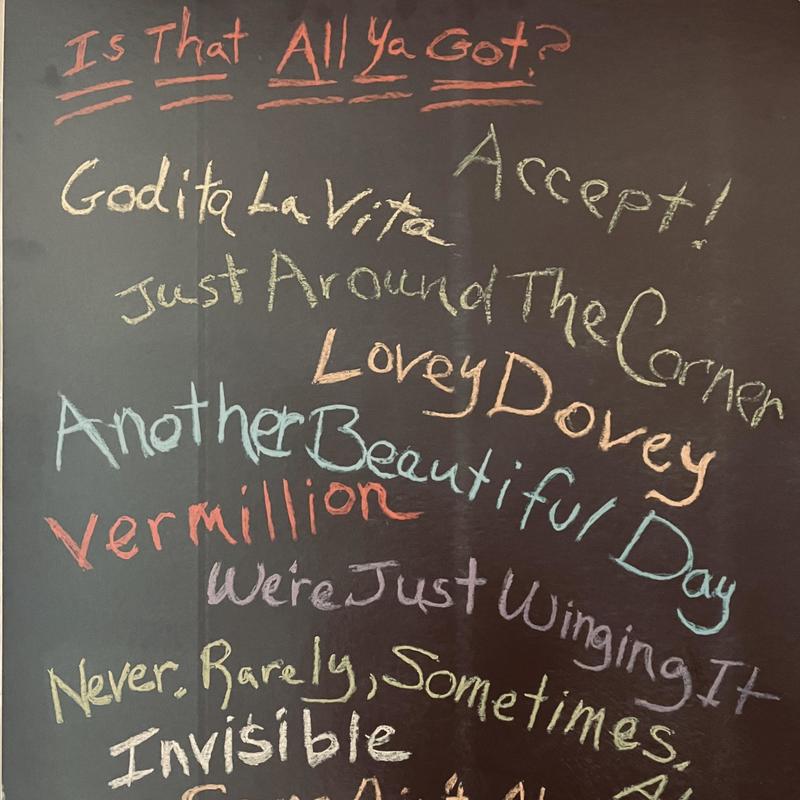 Is That All Ya Got?
Accept!
Godita La Vita
Just Around The Corner
Lovey Dovey
Another Beautiful Day
Vermillion
We're Just Winging It
Never, Rarely, Sometimes,
Invisible
Ain't